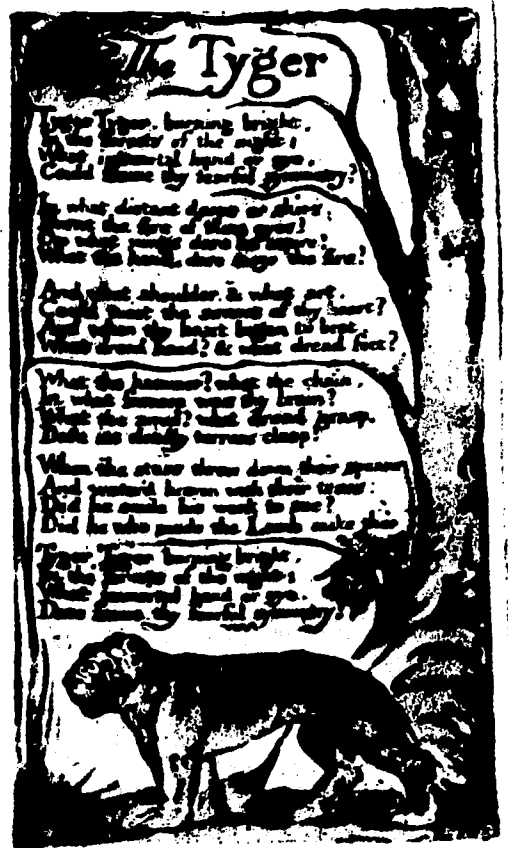 The Tyger
Tyger Tyger, burning bright,
In the forests of the night:
What immortal hand or eye,
Could frame thy fearful symmetry?
In what distant deeps or skies,
Burnt the fire of thine eyes?
On what wings dare he aspire?
What the hand, dare sieze the fire?
And what shoulder, & what art,
Could twist the sinews of thy heart?
And when thy heart began to beat,
What dread hand? & what dread feet?
What the hammer? what the chain,
In what furnace was thy brain?
What the anvil? what dread grasp,
Dare its deadly terrors clasp!
When the stars threw down their spears
And water'd heaven with their tears:
Did he smile his work to see?
Did he who made the Lamb make thee
Tyger Tyger burning bright,
In the forests of the night:
What immortal hand or eye,
Dare frame thy fearful symmetry?